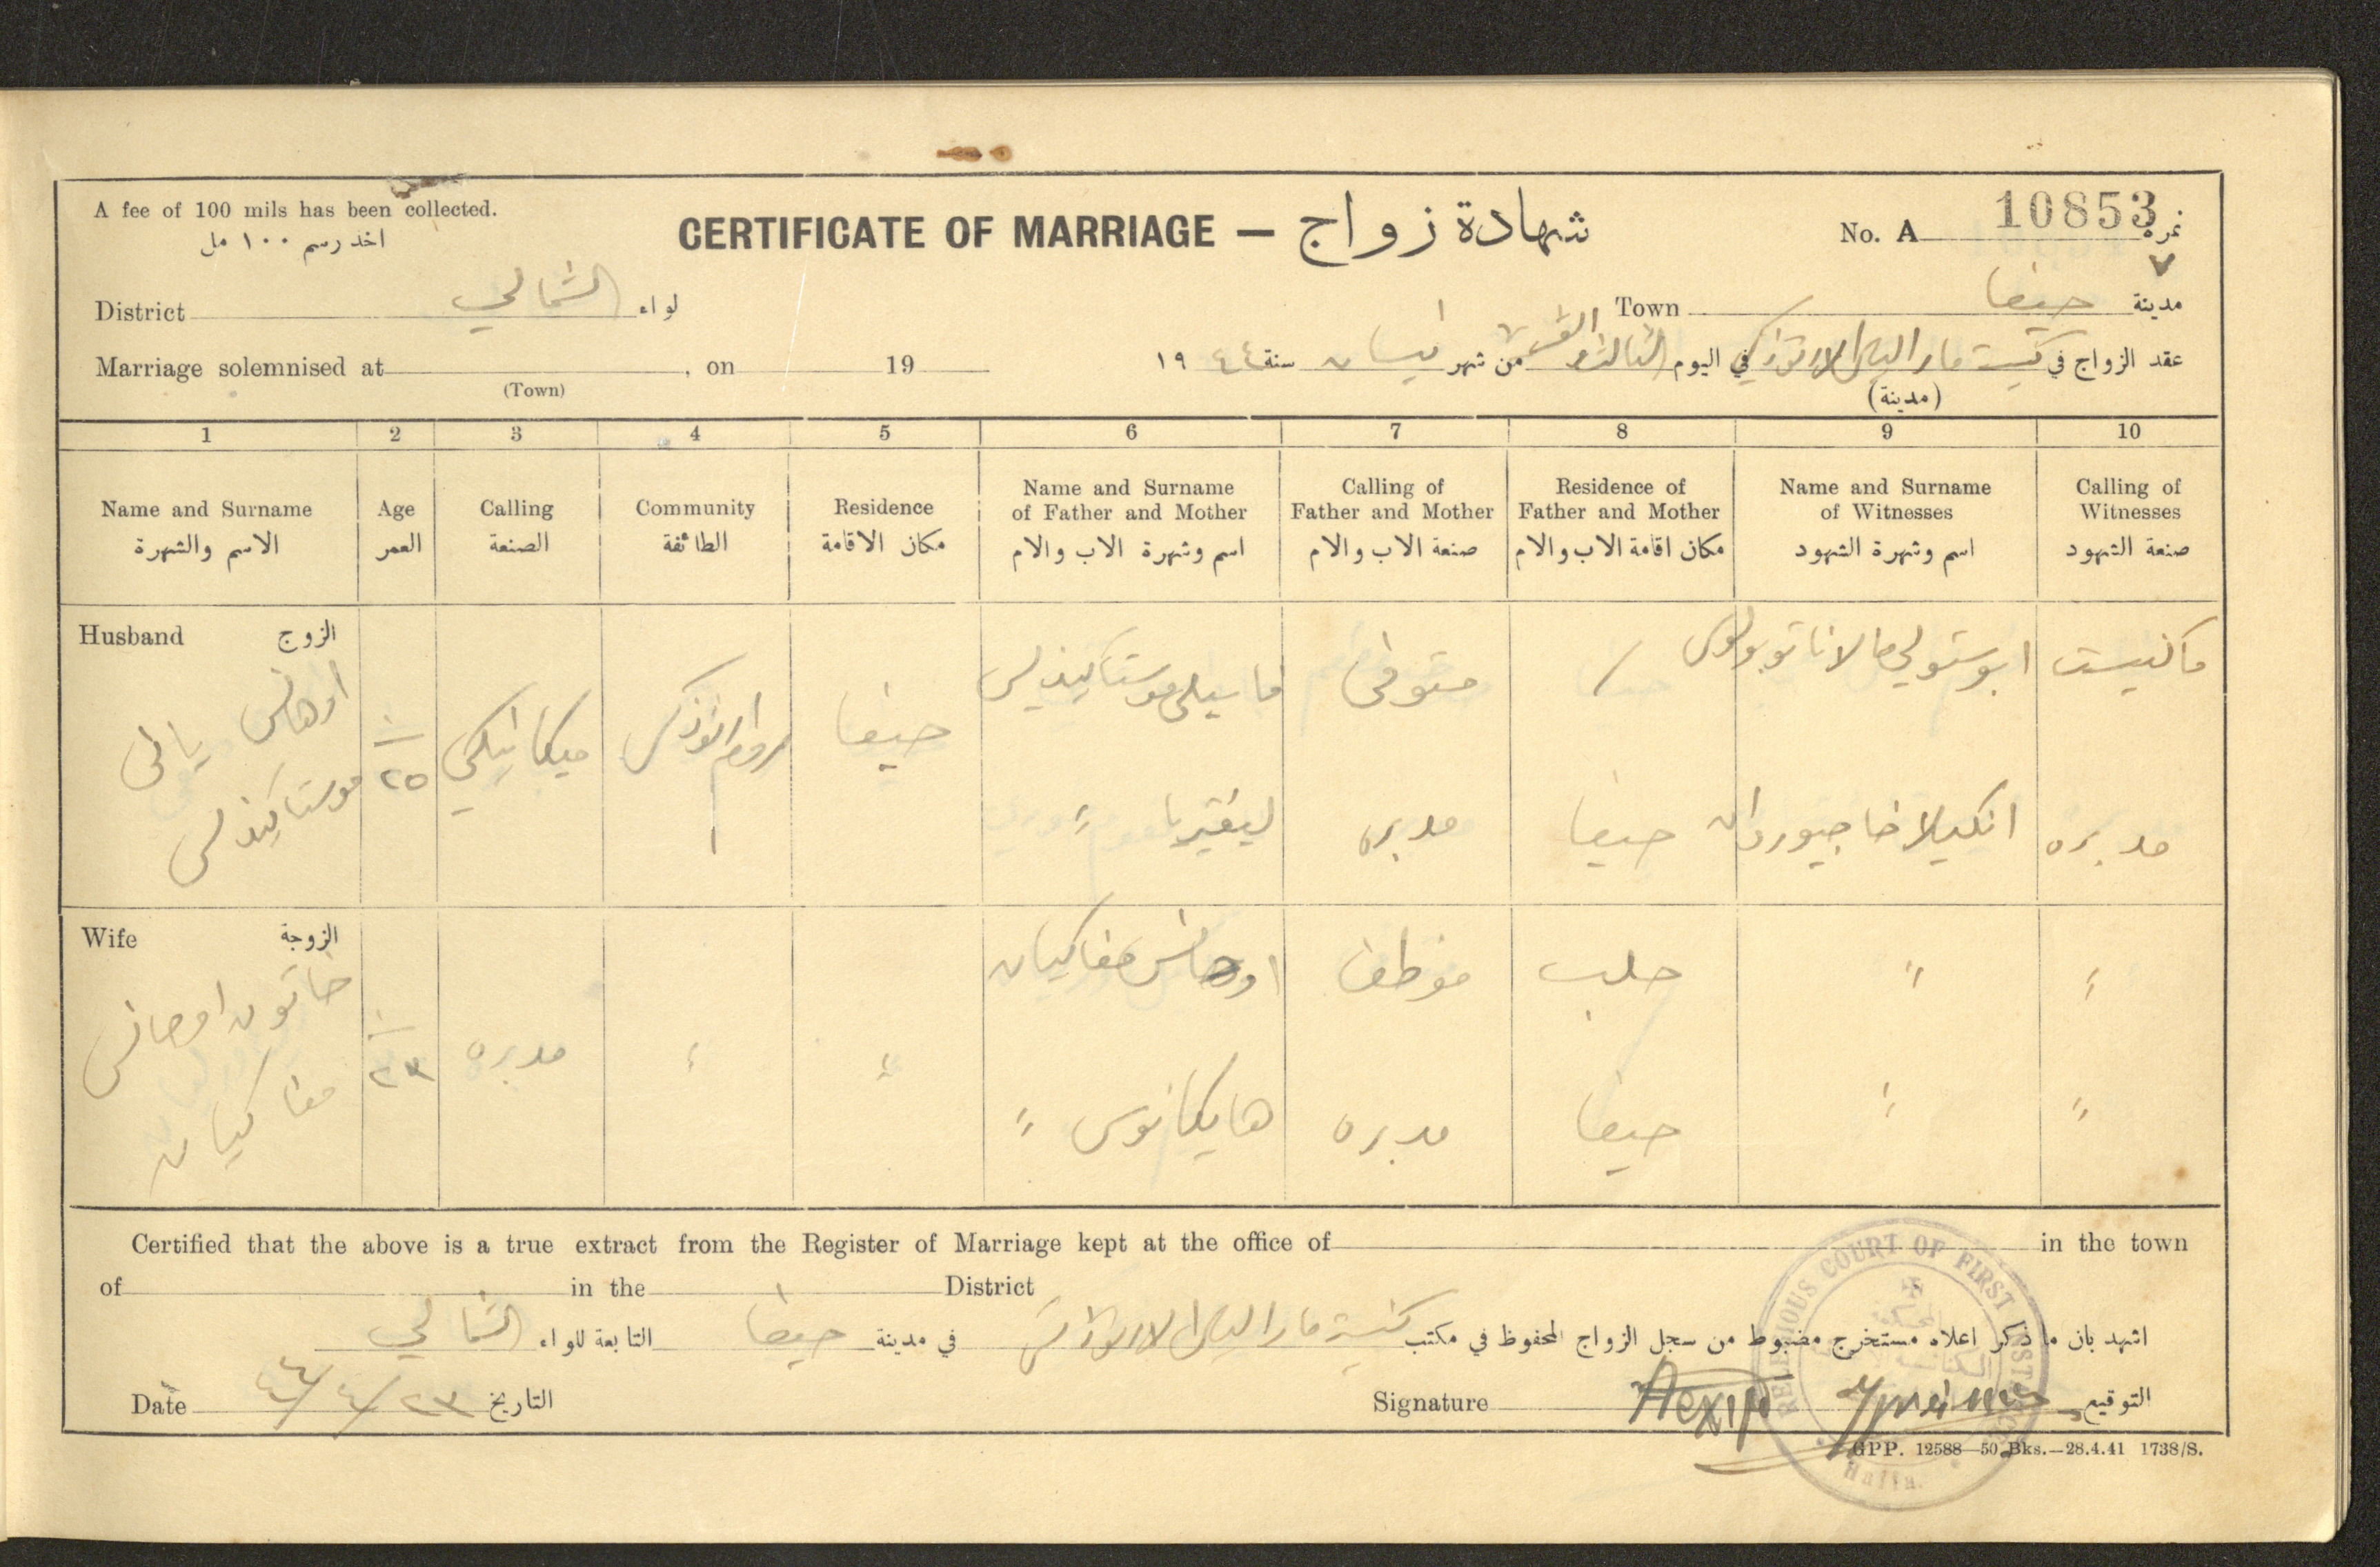 A fee of 100 mils has been collected.
اخذ رسم ١٠٠ مل
CERTIFICATE OF MARRIAGE — شهادة زواج
No. A 10853 نمرة
٧
District الشمالي لواء
Town حيفا مدينة
Marriage solemnised at , on 19
(Town)
عقد الزواج في كنيسة مار الياس الارثوذكسي في اليوم الثالث والعشرين من شهر نيسان سنة ١٩٤٤
(مدينة)
1 2 3 4 5 6 7 8 9 10
Name and Surname
الاسم والشهرة
Age
العمر
Calling
الصنعة
Community
الطائفة
Residence
مكان الاقامة
Name and Surname
of Father and Mother
اسم وشهرة الاب والام
Calling of
Father and Mother
صنعة الاب والام
Residence of
Father and Mother
مكان اقامة الاب والام
Name and Surname
of Witnesses
اسم وشهرة الشهود
Calling of
Witnesses
صنعة الشهود
Husband الزوج
اوهانس
موستاكيذلس
٢٥
ميكانيكي
روم ارثوذكس
حيفا
فاسيلي موستاكيذلس
متوفي
/
ابوستولي
ماكنيست
"
مدبره
حيفا
انكيلا
مدبره
Wife الزوجة
خاتون اوهانس
مفاكيان
٢٣
مدبره
"
"
اوهانس مفاكيان
موظف
حلب
"
"
هايكانوس "
مدبره
حيفا
"
"
Certified that the above is a true extract from the Register of Marriage kept at the office of in the town
of in the District
اشهد بان ما ذكر اعلاه مستخرج مضبوط من سجل الزواج المحفوظ في مكتب كنيسة مار الياس الارثوذكس في مدينة حيفا التابعة للواء الشمالي
Date ٢٣/٤/٤٤ التاريخ
Signature التوقيع
RELIGIOUS COURT OF FIRST INSTANCE
Haifa.
GPP. 12588—50 Bks.—28.4.41 1738/S.